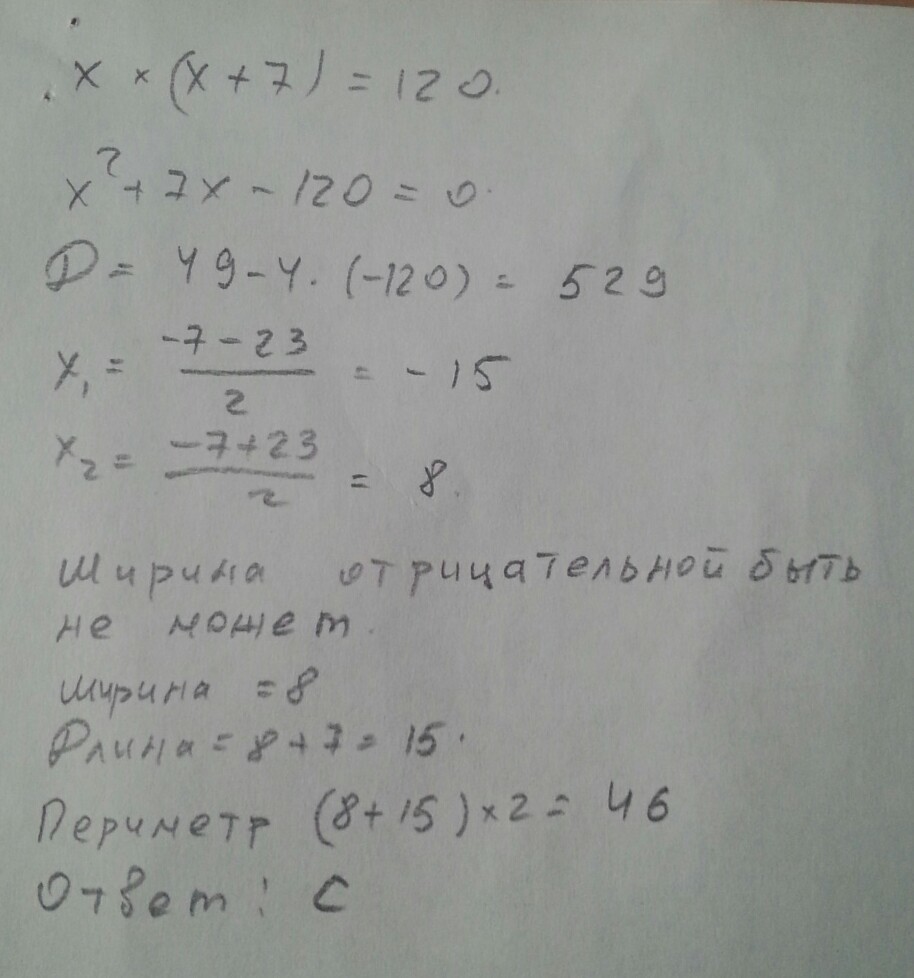 x × (x + 7) = 120.
x² + 7x - 120 = 0.
D = 49 - 4 · (-120) = 529
x₁ = (-7 - 23)/2 = -15
x₂ = (-7 + 23)/2 = 8.
Ширина отрицательной быть
не может.
Ширина = 8
Длина = 8 + 7 = 15.
Периметр (8 + 15) × 2 = 46
Ответ: С